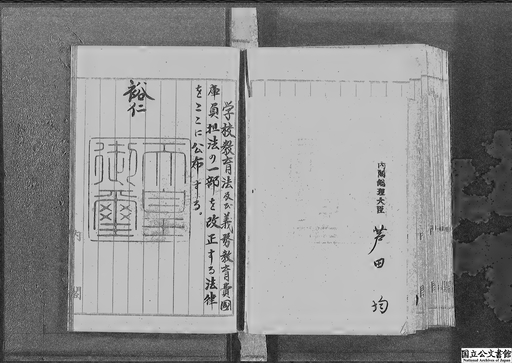 内閣総理大臣
芦田均
学校教育法及び義務教育費國
庫負担法の一部を改正する法律
をここに公布する。
裕仁
天皇
御璽
内閣
国立公文書館
National Archives of Japan